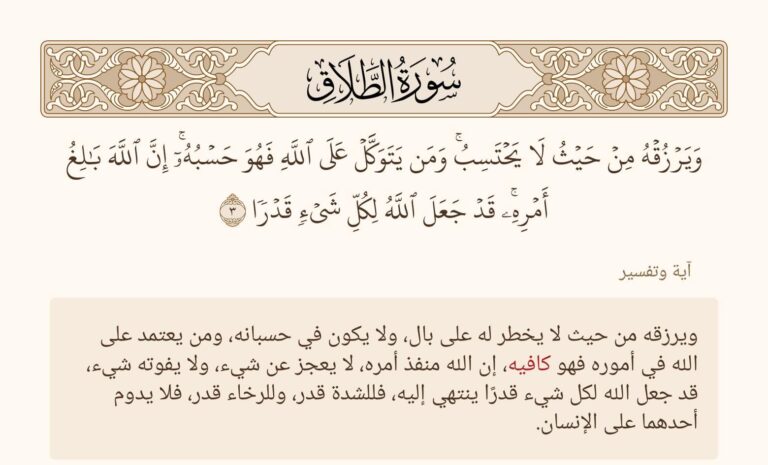 سُورَةُ الطَّلَاقِ
وَيَرْزُقْهُ مِنْ حَيْثُ لَا يَحْتَسِبُ ۚ وَمَن يَتَوَكَّلْ عَلَى ٱللَّهِ فَهُوَ حَسْبُهُۥٓ ۚ إِنَّ ٱللَّهَ بَـٰلِغُ
أَمْرِهِۦ ۚ قَدْ جَعَلَ ٱللَّهُ لِكُلِّ شَىْءٍ قَدْرًا ٣
آية وتفسير
ويرزقه من حيث لا يخطر له على بال، ولا يكون في حسبانه، ومن يعتمد على
الله في أموره فهو كافيه، إن الله منفذ أمره، لا يعجز عن شيء، ولا يفوته شيء،
قد جعل الله لكل شيء قدرًا ينتهي إليه، فللشدة قدر، وللرخاء قدر، فلا يدوم
أحدهما على الإنسان.